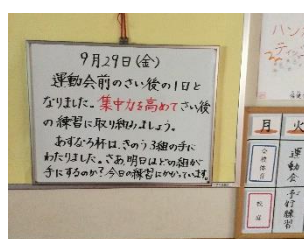 9月29日(金)
運動会前のさい後の1日と
なりました。集中力を高めてさい後
の練習に取り組みましょう。
あすなろ杯は、きのう3組の手に
わたりました。さあ明日はどの組が
手にするのか？今日の練習にかかっています。
ハン
ティ
月
火
全校休日
運動会
予行練習